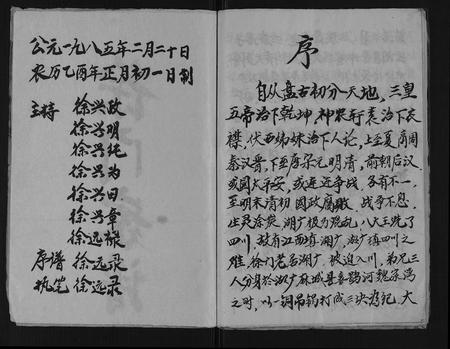 公元一九八五年二月二十日
农历乙酉年正月初一日制
主持 徐兴政
徐兴明
徐兴纯
徐兴为
徐兴田
徐兴章
徐远禄
序谱 徐远录
执笔 徐远录
序
自从盘古初分一天地，三皇
五帝治下乾坤，神农轩袁治下衣
襟，伏西姊妹治下人论，上至夏商周
秦汉晋，下至唐宋元明清，前朝后汉
或国太平安，或逢近争战，各有不一，
至明末清初国政腐败，战争不息，
生灵涂炭，湖广极为混乱，八大王洗了
四川，故有江西填湖广，湖广填四川之
难，徐门老名湖广，被迫入川，为兄三
人分身于湖广麻城县喜鹊河魏家湾
之时，以一铜吊锅打成三块为记，大